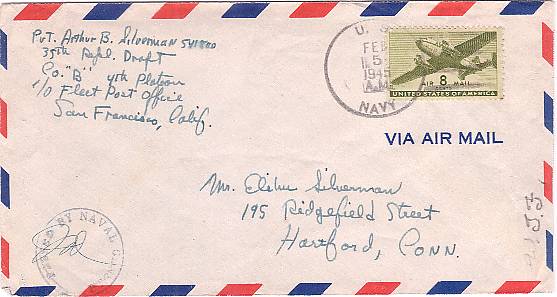 Pvt. Arthur B. Silverman 541800
35th Repl. Draft
Co. "B" 4th Platoon
c/o Fleet Post Office
San Francisco, Calif.
U. S.
FEB
5
1945
A.M.
NAVY
AIR 8 MAIL
CENTS
UNITED STATES OF AMERICA
VIA AIR MAIL
Mr. Elihu Silverman
195 Ridgefield Street
Hartford, Conn.
PASSED BY NAVAL